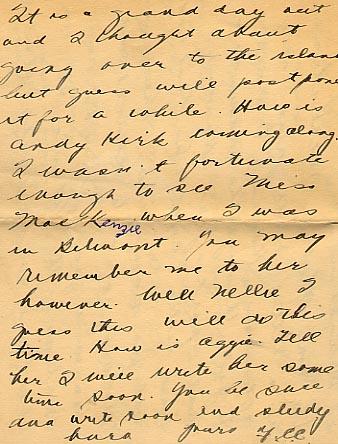 It is a grand day out
and I thought about
going over to the island
but guess will postpone
it for a while. How is
Andy Kirk coming along.
I wasn't fortunate
enough to see Miss
MacKenzie when I was
in Belmont. You may
remember me to her
however. Well Nellie I
guess this will do this
time. How is Aggie. Tell
her I will write her some
time soon. You be sure
and write soon and study
hard yours